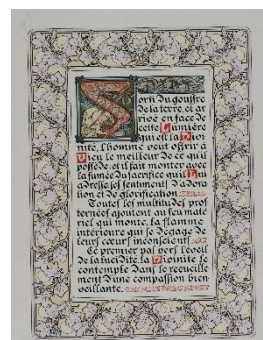 Sorti du gouffre
de la terre, et ar
rivé en face de
cette Lumière
qui est la Divi
nité, l'homme veut offrir à
Dieu le meilleur de ce qu'il
possède, et il fait monter avec
la fumée du sacrifice qu'il Lui
adresse, les sentiments d'adora
tion et de glorification.
Toutes les multitudes pros
ternées ajoutent au feu maté
riel qui monte, la flamme
intérieure qui se dégage de
leurs cœurs inconscients
Ce premier pas vers l'éveil
de la lucidité, la Divinité le
contemple dans le recueille
ment d'une compassion bien
veillante.